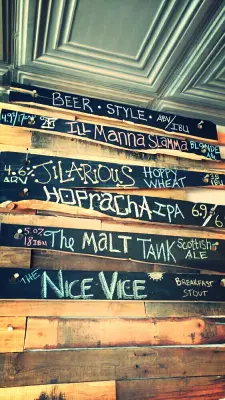 BEER • STYLE • ABV/IBU
4.9/17 ILL-MANNA SLAMMA BLONDE ALE
4.6% ABV JILARIOUS HOPPY WHEAT
HOPRACHA IPA 6.9%
5.0% 18 IBU The MALT TANK SCOTTISH ALE
THE NICE VICE BREAKFAST STOUT